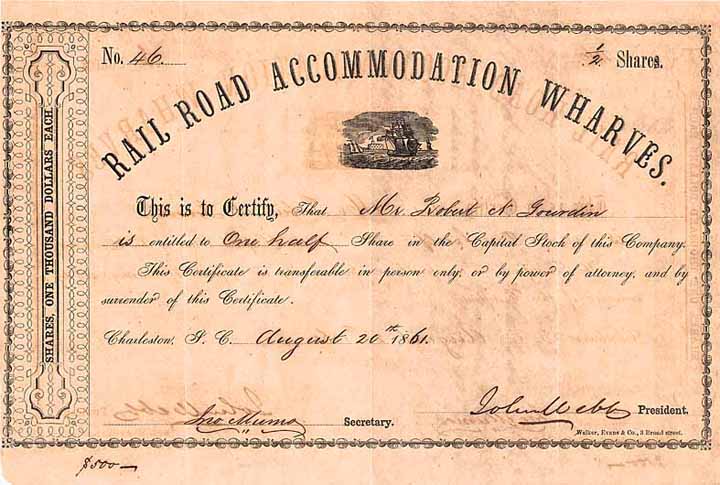 No. 46. ½ Shares.
RAIL ROAD ACCOMMODATION WHARVES.
SHARES, ONE THOUSAND DOLLARS EACH.
This is to Certify, That Mr Robert N Gourdin
is entitled to One half Share in the Capital Stock of this Company.
This Certificate is transferable in person only, or by power of attorney, and by
surrender of this Certificate.
Charleston, S. C. August 20th 1861.
Secretary. John Webb President.
Walker, Evans & Co., 3 Broad street.
$500—